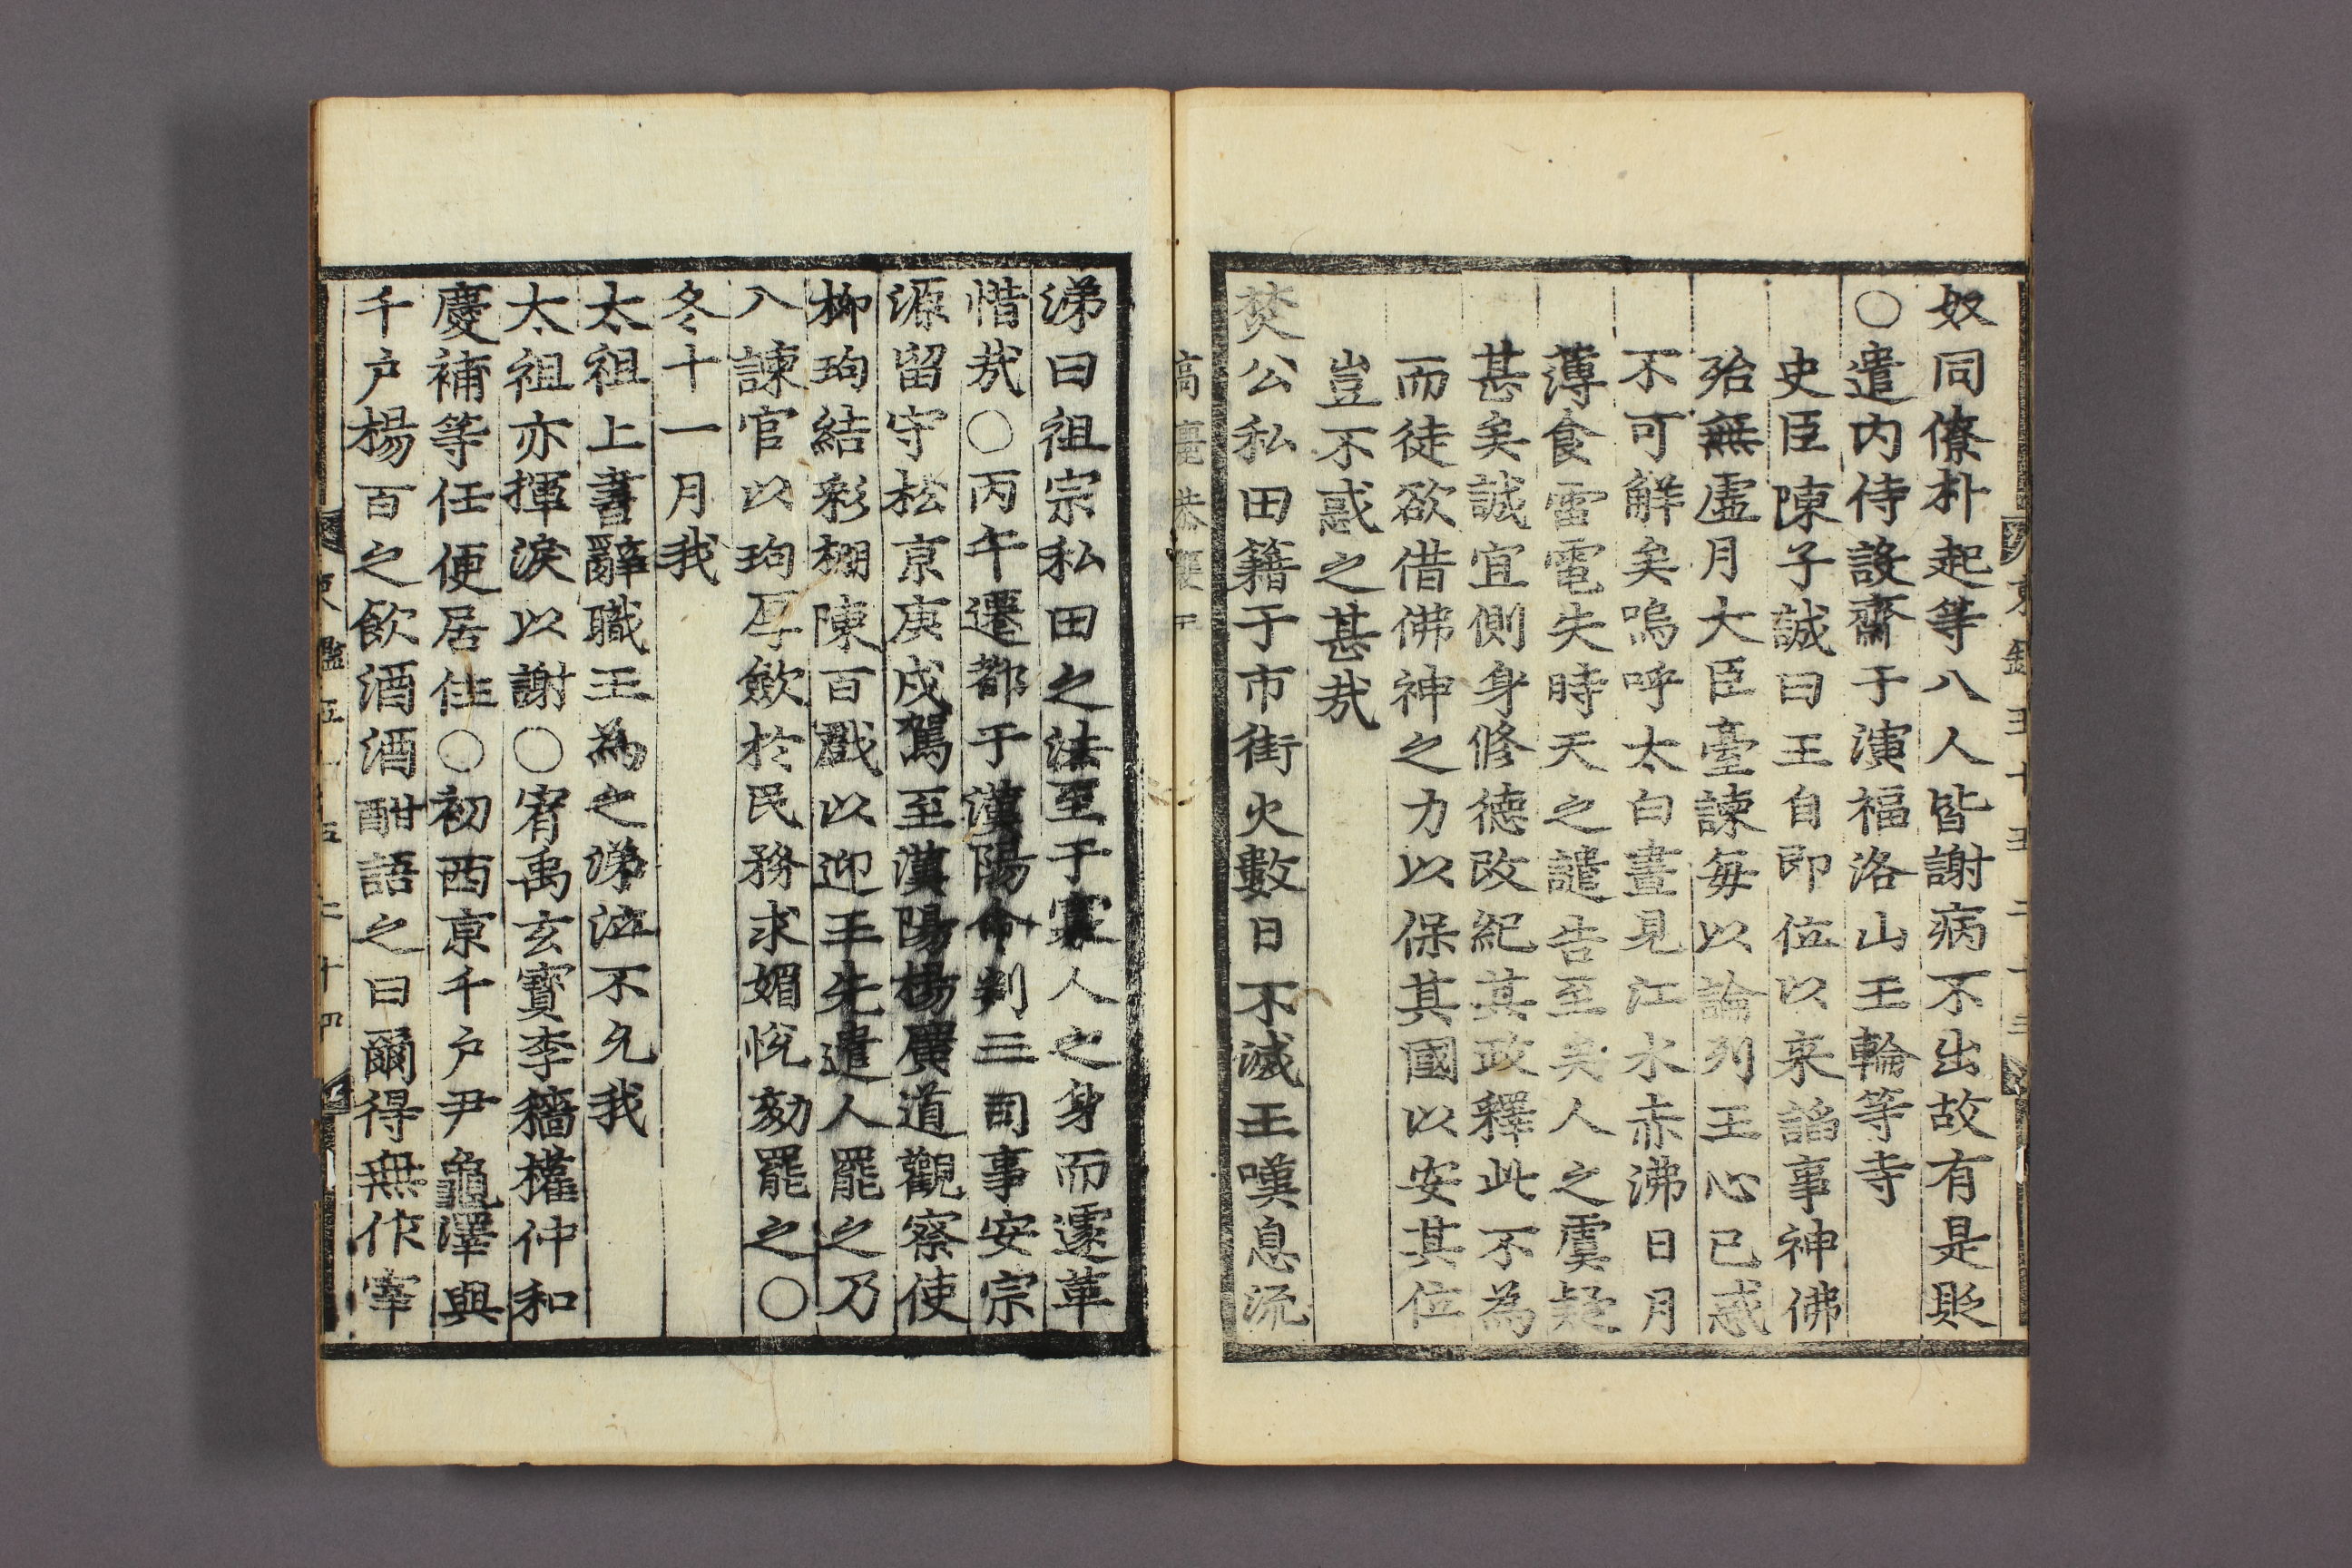 奴同僚朴起等八人皆謝病不出故有是貶
○遣内侍設齋于演福洛山王輪等寺
史臣陳子誠曰王自即位以来諂事神佛
殆無虛月大臣臺諫每以論列王心已惑
不可解矣嗚呼太白晝見江水赤沸日月
薄食雷電失時天之譴告至矣人之虞疑
甚矣誠宜側身修德改紀其政釋此不為
而徒欲借佛神之力以保其國以安其位
豈不惑之甚㢤
焚公私田籍于市街火數日不滅王嘆息流
涕曰祖宗私田之法至于寡人之身而遽革
惜㢤○丙午遷都于漢陽命判三司事安宗
源留守松京庚戌駕至漢陽楊廣道觀察使
柳玽結彩棚陳百戱以迎王先遣人罷之乃
入諫官以玽厚斂於民務求媚悅劾罷之○
冬十一月我
太祖上書辭職王為之涕泣不允我
太祖亦揮淚以謝○宥禹玄寳李穡權仲和
慶補等任便居住○初西京千户尹龜澤與
千户楊百之飲酒酒酣語之曰爾得無作宰